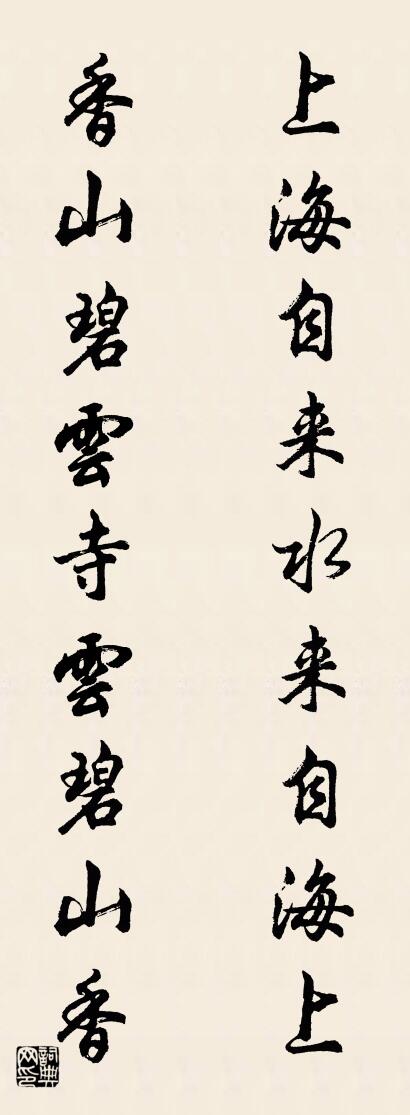 上海自来水来自海上
香山碧雲寺雲碧山香
詞典網印